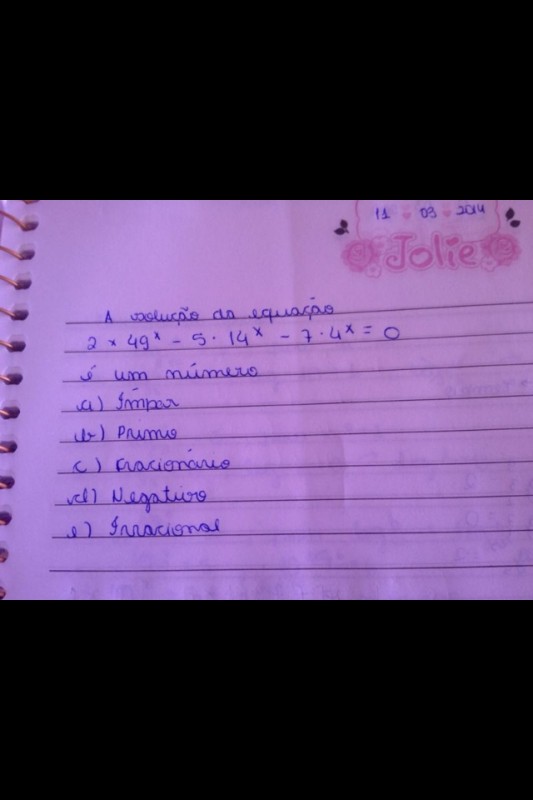 11 03 2014
Jolie
A solução da equação
2 × 49ˣ - 5 · 14ˣ - 7 · 4ˣ = 0
é um número
a) Ímpar
b) Primo
c) Fracionário
d) Negativo
e) Irracional